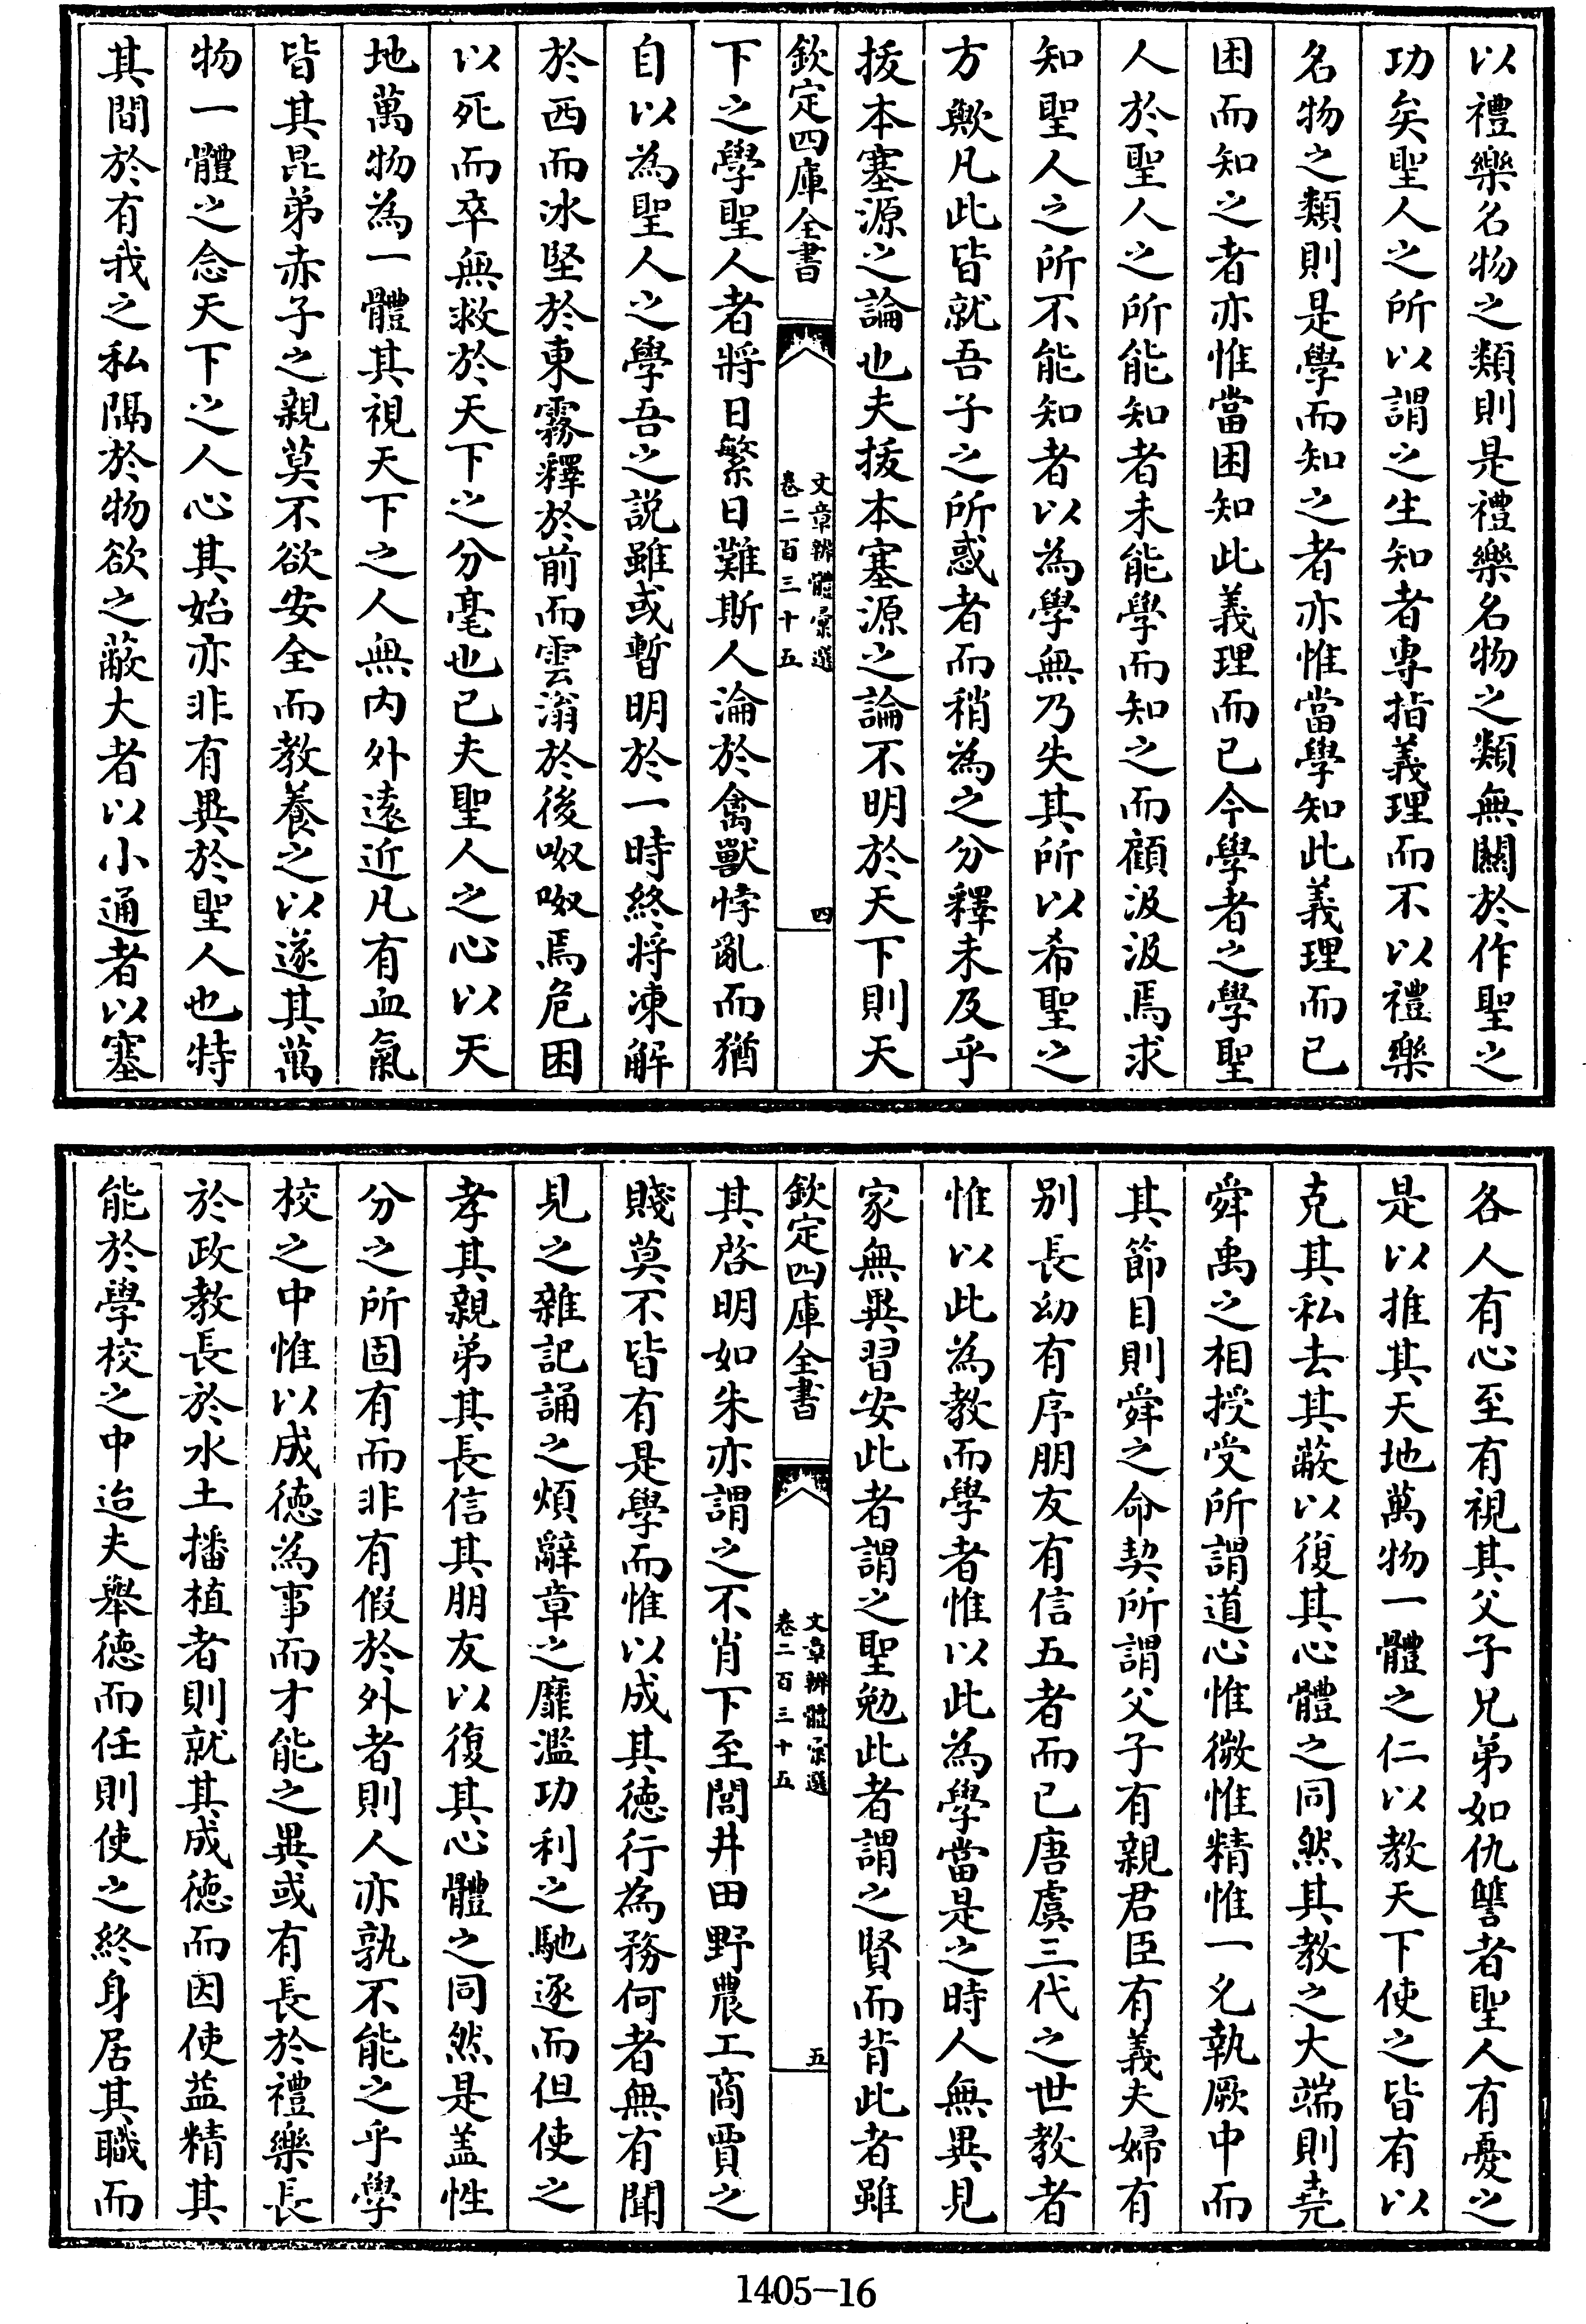 以禮樂名物之類則是禮樂名物之類無關於作聖之
功矣聖人之所以謂之生知者專指義理而不以禮樂
名物之類則是學而知之者亦惟當學知此義理而已
困而知之者亦惟當困知此義理而已今學者之學聖
人於聖人之所能知者未能學而知之而顧汲汲焉求
知聖人之所不能知者以為學無乃失其所以希聖之
方歟凡此皆就吾子之所惑者而稍為之分釋未及乎
拔本塞源之論也夫拔本塞源之論不明於天下則天
欽定四庫全書
文章辨體彙選
卷二百三十五
四
下之學聖人者將日繁日難斯人淪於禽獸悖亂而猶
自以為聖人之學吾之説雖或暫明於一時終將凍解
於西而冰堅於東霧釋於前而雲滃於後呶呶焉危困
以死而卒無救於天下之分毫也已夫聖人之心以天
地萬物為一體其視天下之人無内外遠近凡有血氣
皆其昆弟赤子之親莫不欲安全而教養之以遂其萬
物一體之念天下之人心其始亦非有異於聖人也特
其間於有我之私隔於物欲之蔽大者以小通者以塞
各人有心至有視其父子兄弟如仇讐者聖人有憂之
是以推其天地萬物一體之仁以教天下使之皆有以
克其私去其蔽以復其心體之同然其教之大端則堯
舜禹之相授受所謂道心惟微惟精惟一允執厥中而
其節目則舜之命契所謂父子有親君臣有義夫婦有
别長幼有序朋友有信五者而已唐虞三代之世教者
惟以此為教而學者惟以此為學當是之時人無異見
家無異習安此者謂之聖勉此者謂之賢而背此者雖
欽定四庫全書
文章辨體彙選
卷二百三十五
五
其啓明如朱亦謂之不肖下至閭井田野農工商賈之
賤莫不皆有是學而惟以成其徳行為務何者無有聞
見之雜記誦之煩辭章之靡濫功利之馳逐而但使之
孝其親弟其長信其朋友以復其心體之同然是盖性
分之所固有而非有假於外者則人亦孰不能之乎學
校之中惟以成徳為事而才能之異或有長於禮樂長
於政教長於水土播植者則就其成徳而因使益精其
能於學校之中迨夫舉徳而任則使之終身居其職而
1405-16